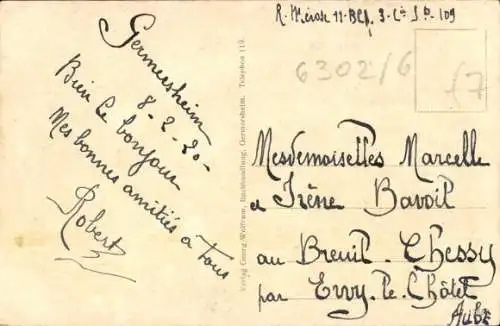 R. Mérat 11-BCP. 3-Cie S.P-109
6302/6
17
Germersheim
8-2-20-
Bien le bonjour
Mes bonnes amitiés à Tous
Robert
Verlag Georg Wolfrum, Buchhandlung, Germersheim. Telephon 119.
Mesdemoiselles Marcelle
et Irène Bavoil
au Breuil. Chessy
par Ervy-le-Châtel
Aube